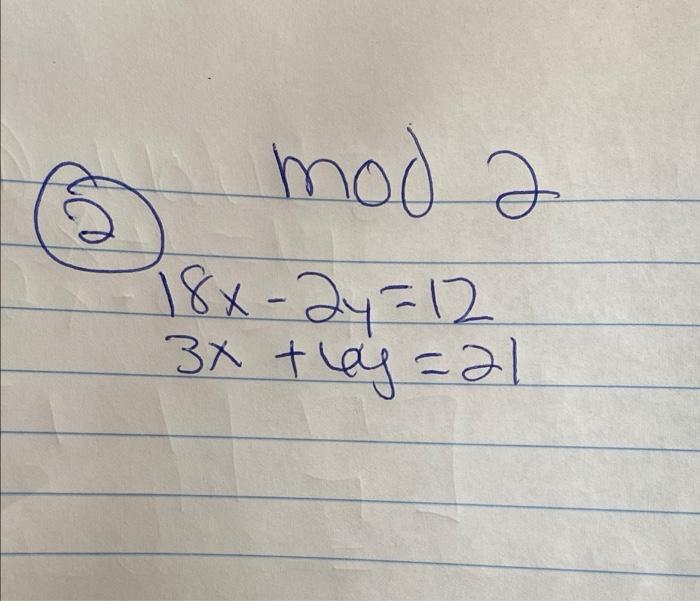 mod 2
2
18x - 2y = 12
3x + 6y = 21